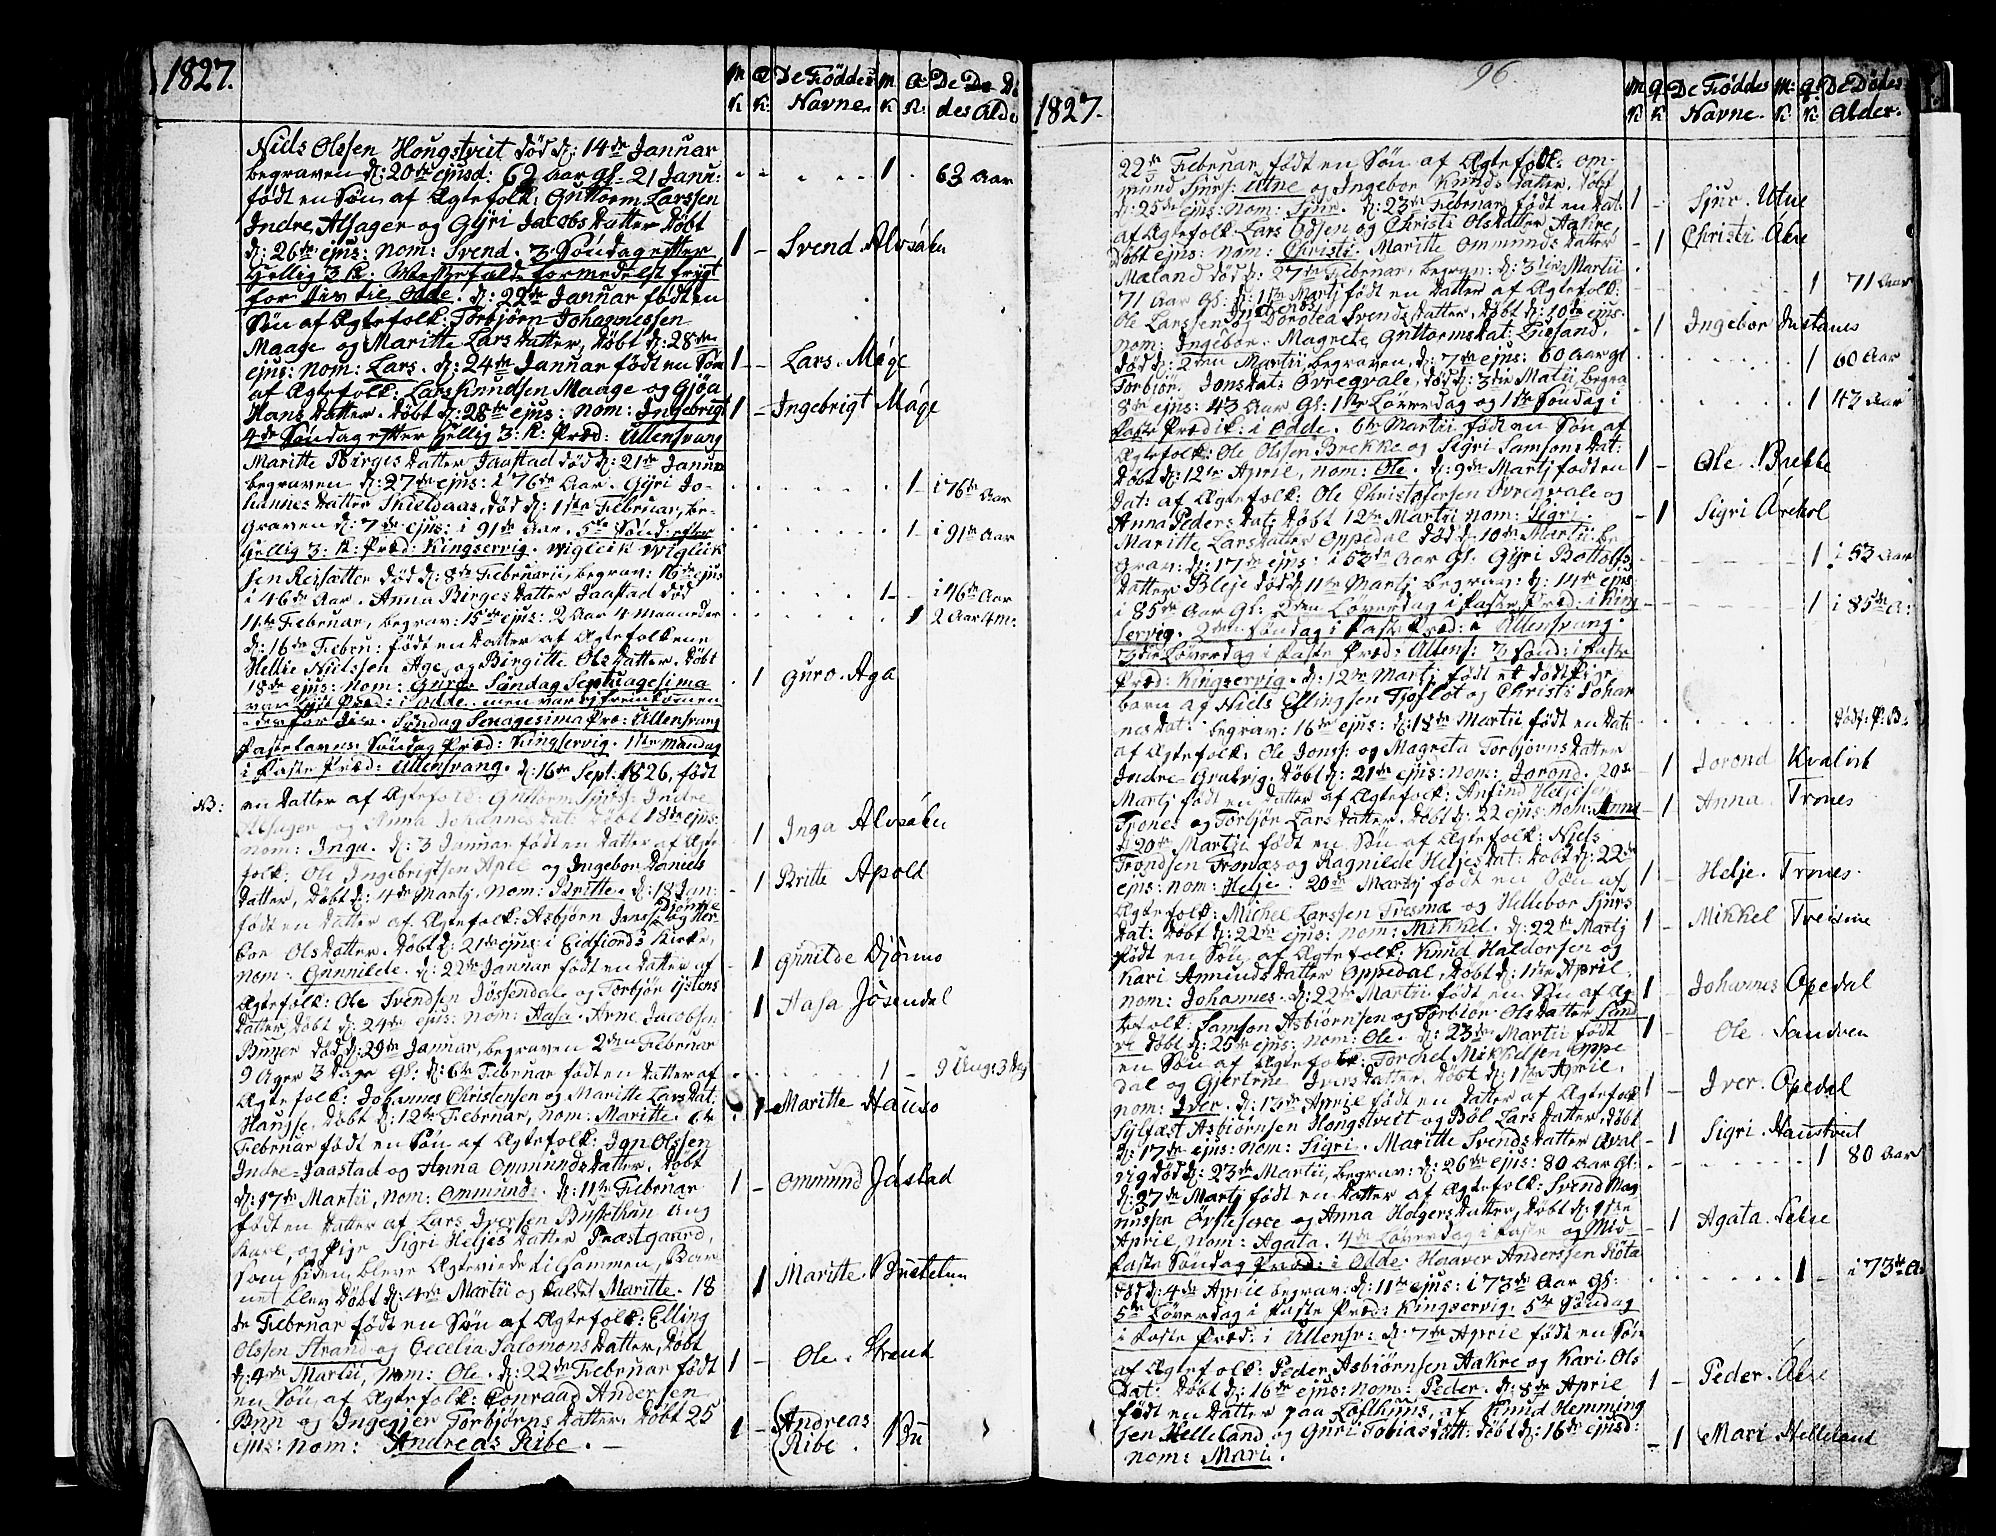 1827.
M K
Q K:
De Føddes Navne.
M K
Q K:
De Dødes Alder
Niels Olssen Hongstveit død d: 14de Januar
begraven d: 20de ejusd: 62 Aar Gl- 21 Janu:
født en Søn af Ægtefolk: Guttorm Larssen
Indre Alsager og Gyri Jacobs Datter Døbt
d: 26de ejus: nom: Svend. 3 Søndag efter
Hellig 3 K. Messefald formedelst frygt
for Liv til Odde. d: 22de Januar født en
Søn af Ægtefolk: Torbjørn Johannessen
Maage og Maritte Lars Datter, Døbt d: 28de
ejus: nom: Lars. d: 24de Januar født en Søn
af Ægtefolk: Lars Knudsen Maage og Gjøa
Hans Datter. Døbt d: 28de ejus: nom: Ingebrigt
4de Søndag efter Hellig 3: K: Præd: Ullensvang
Maritte Birges Datter Jaastad død d: 21de Januar
begraven d: 27de ejus: i 76de Aar. Gyri Jo-
hannes Datter Skieldaas, død d: 1ste Februar, be-
graven d: 7de ejus: i 91de Aar. 5te Sønd: efter
Hellig 3: K: Præd: Kingservig. Wigleik Wigleik
sen Reisætter død d: 8de Februarii, begrav: 16de ejus
i 46de Aar. Anna Birges Datter Jaastad død
11te Februar, begrav: 15de ejus: 2 Aar 4 Maaneder
d: 16de Febru: født en Datter af Ægtefolkene
Helje Nielssen Age, og Birgitte Ols Datter. Døbt
18de ejus: nom: Guro. Søndag Septuagesima
var Præd: i Odde men var ej fremkommen
Søndag Sexagesima Præd: Ullensvang
Fastelavns Søndag Præd: Kingservig. 1ste Mandag
i Faste Præd: Ullensvang. d: 16de Sept. 1826, født
NB:
en Datter af Ægtefolk: Guttorm Indre
Alsager og Anna Johannes Dat: Døbt 18de ejus:
nom: Inga. d: 3 Januar født en Datter af Ægte
folk: Ole Ingebrigtsen Aple og Ingebor Daniels
Datter, Døbt d: 4de Martj. nom: Britte. d: 18 Jan:
født en Datter af Ægtefolk: Asbjørn Djønne og Her-
bor Ols Datter. Døbt d: 21de ejus: i Eidfiords Kirke,
nom: Gunnilde. d: 22de Januar født en Datter af
Ægtefolk: Ole Svendsen Jøssendal og Torbjør
Datter, Døbt d: 24de ejus: nom: Aasa. Arne Jacobsen
død d: 29de Januar, begraven 2den Februar
9 Uger 3 Dage Gl: d: 6te Februar født en Datter af
Ægtefolk: Johannes Christensen og Maritte Lars Dat:
Hausse. Døbt d: 12te Februar, nom: Maritte. 6te
Februar født en Søn af Ægtefolk: Jon Olssen
Indre-Jaastad og Anna Ommunds Datter. Døbt
d: 17de Martii, nom: Ommund. d: 11te Februar
født en Datter af Lars Iversen Busethun Ung
karl, og Pige Sigri Heljes Datter Præstgaard,
som siden bleve Ægteviede tilsammen, Bar
net blev Døbt d: 4de Martii og kaldet Maritte. 18
de Februar født en Søn af Ægtefolk: Elling
Olssen Strand og Cecelia Salomons Datter, Døbt
d: 4de Martii, nom: Ole. d: 22de Februar født
en Søn af Ægtefolk: Conraad Andersen
og Ingegjer Torbjørns Datter. Døbt 25
ejus: nom: Andreas Ribe.
1 63 Aar
1 Svend Alvsåker
1 Lars. Måge
1 Ingebrigt Måge
1 i 76de Aar
1 i 91de Aar
1 i 46de Aar
1 2 Aar 4 m:
1 Guro. Aga
1 Inga Alvsåker
1 Britte Apold
1 Gunilde Djønno
1 Aasa Jøsendal
1 9 Uger 3 Dag
1 Maritte Hauso
1 Ommund Jåstad
1 Maritte Bustetun
1 Ole. Strand
1 Andreas Ribe. Bu
96.
1827.
M K
Q K
De Føddes Navne.
M: K
Q: K:
De Dødes Alder.
22de Februar født en Søn af Ægtefolk: Om-
mund Sjurs: Utne og Ingebor Knuds Datter, Døbt
d: 25de ejus: nom: Sjur. d: 23de Februar født en Dat:
af Ægtefolk Lars Godsen og Christi Olsdatter Aakre,
Døbt ejus: nom: Christi. Maritte Ommunds Datter
Mæland død d: 27de Februar, begrav: d: 3die Martii
71 Aar Gl: d: 1ste Martj født en Datter af Ægtefolk:
Ole Larssen og Dorotea Svends Datter, Døbt d: 10de ejus:
nom: Ingebor. Magrete Guttormsdat:
død d: 2den Martii, begraven d: 7de ejus: 60 Aar gl
Torbjør Jonsdat: Øvregvale, død d: 3die Martii, begra
8de ejus: 43 Aar Gl: 1ste Løverdag og 1ste Søndag i
Faste Prædik: i Odde. 6te Martii født en Søn af
Ægtefolk: Ole Olssen Brekke og Sigri Samsons Dat:
Døbt d: 12te April, nom: Ole. d: 9de Martj født en
Dat: af Ægtefolk: Ole Christofersen Øvregvale og
Anna Peders Dat: Døbt 12te Martii nom: Sigri.
Maritte Lars Datter Oppedal død d: 10de Martii be
grav: d: 17de ejus: i 53de Aar Gl. Gyri Bottolfs
Datter Bleje død d: 11te Martj begrav: d: 14de ejus
i 85de Aar Gl: 2den Løverdag i Faste Præd: i King
servig. 2den Søndag i Faste Præd: i Ullensvang.
3die Løverdag i Faste Præd: Ullens: 3 Sønd: i Faste
Præd: Kingservig. d: 12te Martj født et dødt Pige
barn af Niels Ellingsen Tjoflot og Christi Johan
nes dat: begrav: 16de ejus: d: 18de Martii født en Dat:
af Ægtefolk: Ole Jons: og Magreta Torbjørns Datter
Indre Døbt d: 21de ejus: nom: Jorond. 20de
Martj født en Datter af Ægtefolk: Anfind Heljesen
Trones og Torbjør Lars Datter. Døbt d: 22 ejus: nom: Anna
d: 20de Martii født en Søn af Ægtefolk: Niels
Trondsen Tronæs og Ragnilde Heljes Dat: Døbt d: 22de
ejus: nom: Helje. 20de Martij født en Søn af
Ægtefolk: Michel Larssen Tresmæ og Hellebor Sjurs
Dat: Døbt d: 22de ejus: nom: Mikkel. d: 22de Martj
født en Søn af Ægtefolk: Knud Haldorsen og
Kari Amunds Datter Oppedal, Døbt d: 1ste April.
nom: Johannes. d: 22de Martii født en Søn af Æg
tefolk: Samson Asbjørnsen og Torbjør Ols Datter Sand
ve Døbt d: 25de ejus: nom: Ole. d: 23de Martii født
en Søn af Ægtefolk: Torchel Mikkelsen Oppe
dal og Gjertrue Ivers Datter. Døbt d: 1ste April.
nom: Iver. d: 13de April født en Datter af Ægtefolk
Sylfæst Asbjørnsen Hongstveit og Bøl Lars Datter, Døbt
d: 17de ejus: nom: Sigri. Maritte Svends Datter Qval
vig død d: 23de Martii, begrav: d: 26de ejus: 80 Aar Gl:
d: 27de Martj født en Datter af Ægtefolk: Svend Mag
nussen og Anna Holgers Datter, Døbt d: 1ste
April, nom: Agata. 4de Løverdag i Faste og Mid-
faste Søndag Præd: i Odde. Haaver Anderssen
død: 4de Aprile begrav: d: 11te ejus: i 73de Aar Gl:
5te Løverdag i Faste Præd: Kingservig. 5te Søndag
i Faste Præd: i Ullensv: d: 7de April født en Søn
af Ægtefolk: Peder Asbjørnsen Aakre og Kari Ols
Dat: Døbt d: 16de ejus: nom: Peder. d: 8de April
født en Datter paa Lofthuus, af Knud Hemming
sen Helleland og Guri Tobias datt: Døbt d: 16de ejusd:
nom: Mari.
1 Sjur. Utne
1 Christi Åkre
1 71 Aar
1 Ingebor Instanes
1 60 Aar
1 43 Aar
1 Ole. Brekke
1 Sigri
1 i 53 Aar
1 i 85de A:
Dødf: P: B:
1 Jorond Kvalvik
1 Anna. Trones
1 Helje. Trones.
1 Mikkel Treisme
1 Johannes Opedal
1 Ole Sandven
1 Iver. Opedal
1 Sigri Haustveit
1 80 Aar
1 Agata. Sekse
1 i 73de A:
1 Peder. Åkre
1 Mari Helleland